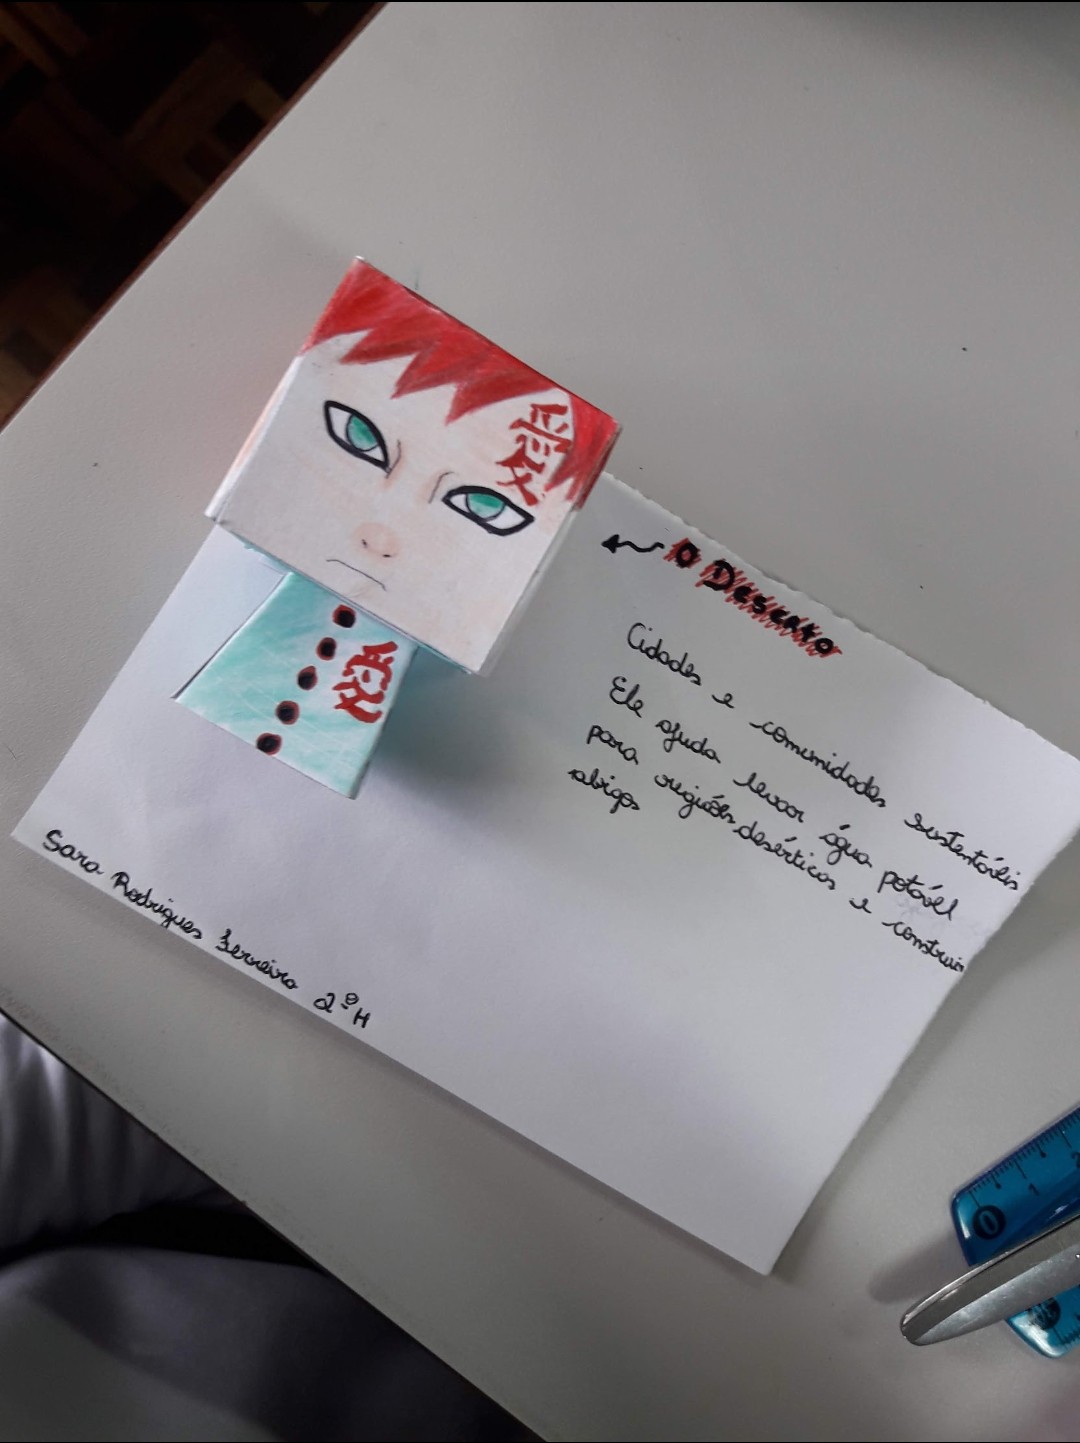 愛
愛
O Deserto
Cidades e comunidades sustentáveis
Ele ajuda levar água potável
para regiões desérticas e construir
abigos
Sara Rodrigues Ferreira 2º H
0 1 2